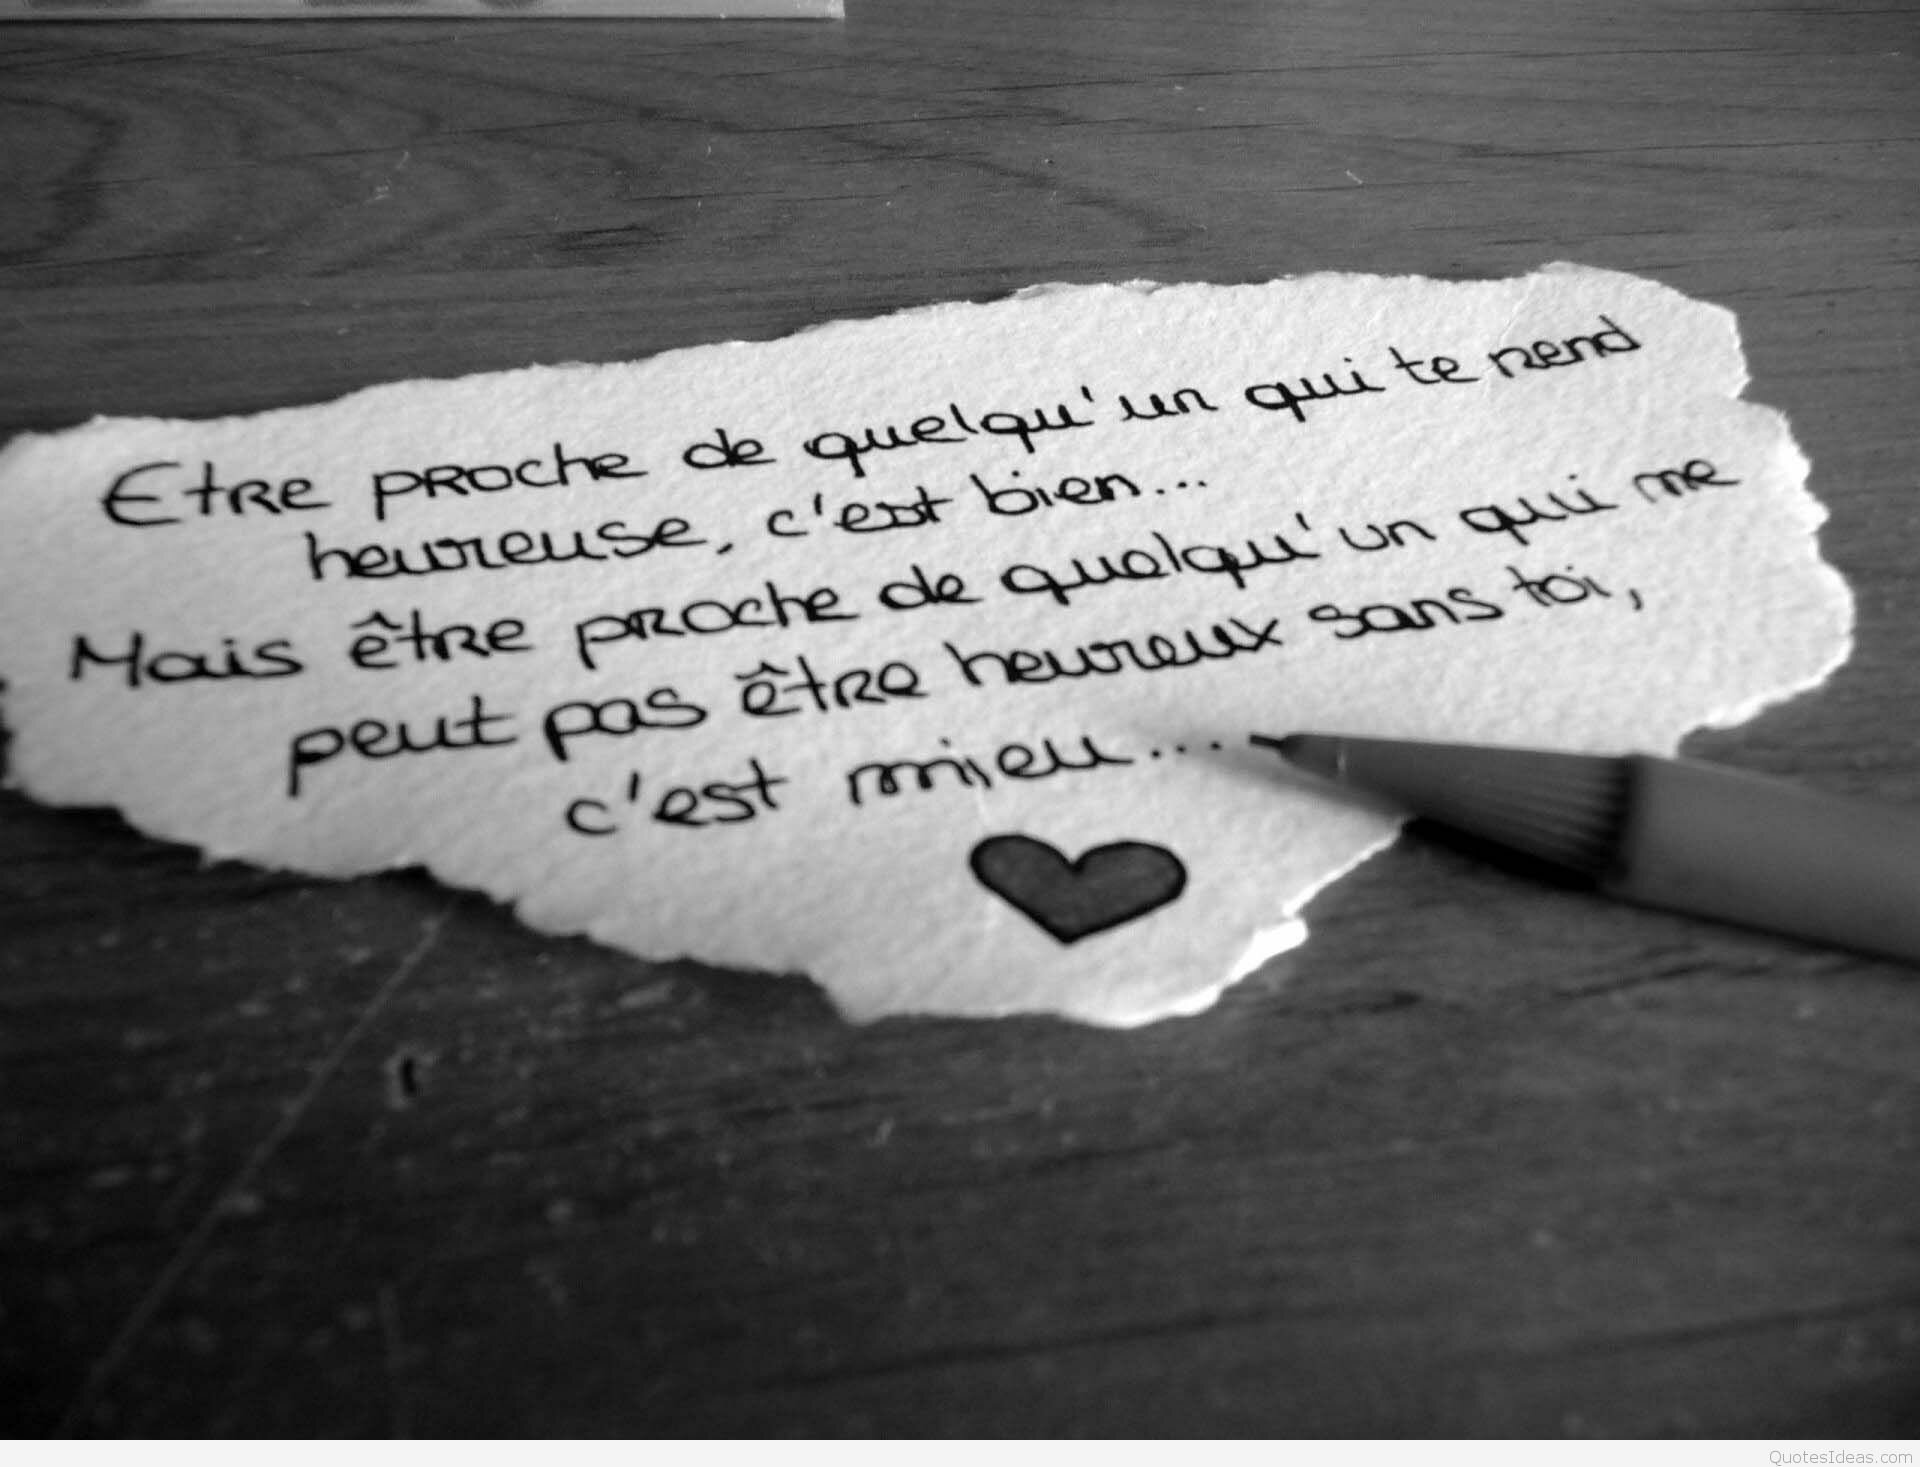 Etre proche de quelqu'un qui te rend
heureuse, c'est bien...
Mais être proche de quelqu'un qui me
peut pas être heureux sans toi,
c'est mieu...
QuotesIdeas.com